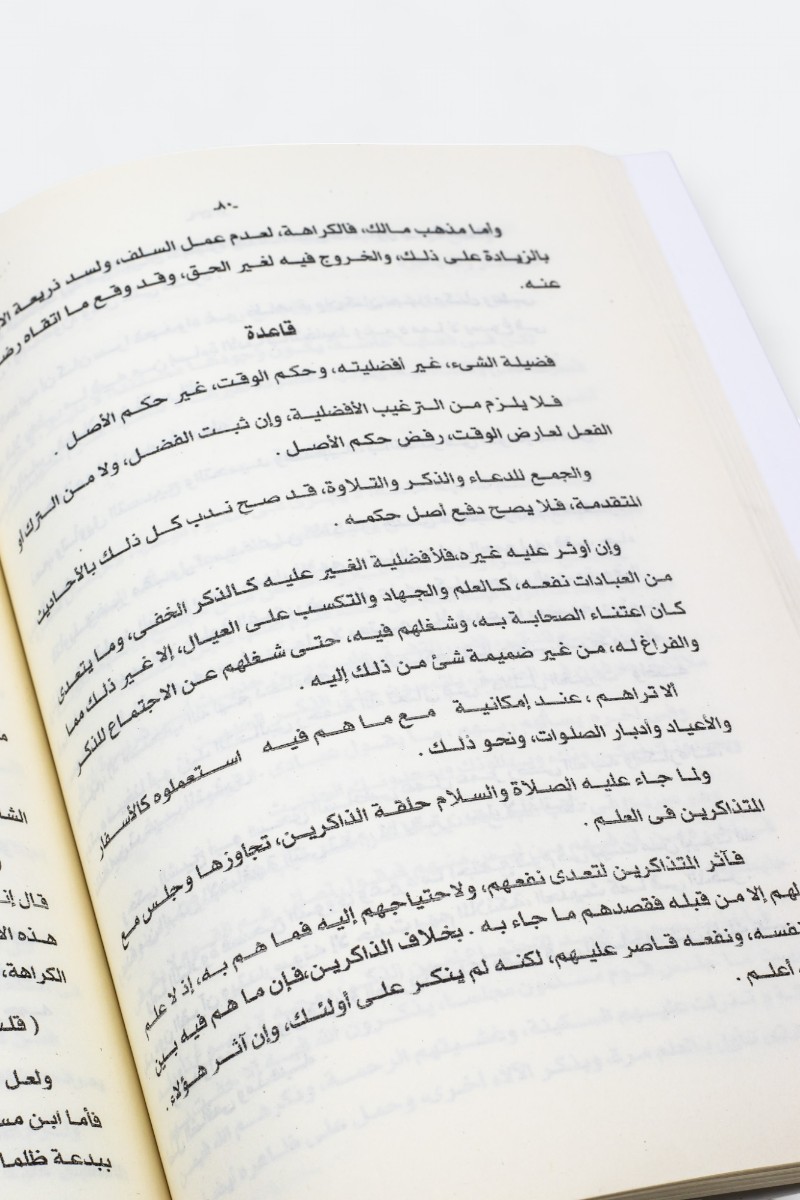 -٨٠-
وأما مذهب مالك، فالكراهة، لعدم عمل السلف، ولسد ذريعة
بالزيادة على ذلك، والخروج فيه لغير الحق، وقد وقع ما اتقاه
عنه.
قاعدة
فضيلة الشىء، غير أفضليته، وحكم الوقت، غير حكم الأصل .
فلا يلزم من الترغيب الأفضلية، وإن ثبت الفضل، ولا من الترك أو
الفعل لعارض الوقت، رفض حكم الأصل .
والجمع للدعاء والذكر والتلاوة، قد صح ندب كل ذلك بالأحاديث
المتقدمة، فلا يصح دفع أصل حكمه .
وإن أوثر عليه غيره،فلأفضلية الغير عليه كالذكر الخفى، وما يتعدى
من العبادات نفعه، كالعلم والجهاد والتكسب على العيال، إلا غير ذلك مما
كان اعتناء الصحابة به، وشغلهم فيه، حتى شغلهم عن الاجتماع للذكر
والفراغ له، من غير ضميمة شئ من ذلك إليه .
الا تراهم ، عند إمكانية مع ما هم فيه استعملوه كالأسفار
والأعياد وأدبار الصلوات، ونحو ذلك .
ولما جاء عليه الصلاة والسلام حلقة الذاكرين، تجاوزها وجلس مع
المتذاكرين فى العلم .
فآثر المتذاكرين لتعدى نفعهم، ولاحتياجهم إليه فما هم به، إذ لا علم
لهم إلا من قبله فقصدهم ما جاء به . بخلاف الذاكرين،فإن ما هم فيه بين
ونفعه قاصر عليهم، لكنه لم ينكر على أولئك، وإن آثر هؤلاء.
أعلم .
هذه
الكراهة،
ولعل
فأما ابن
ببدعة ظلما